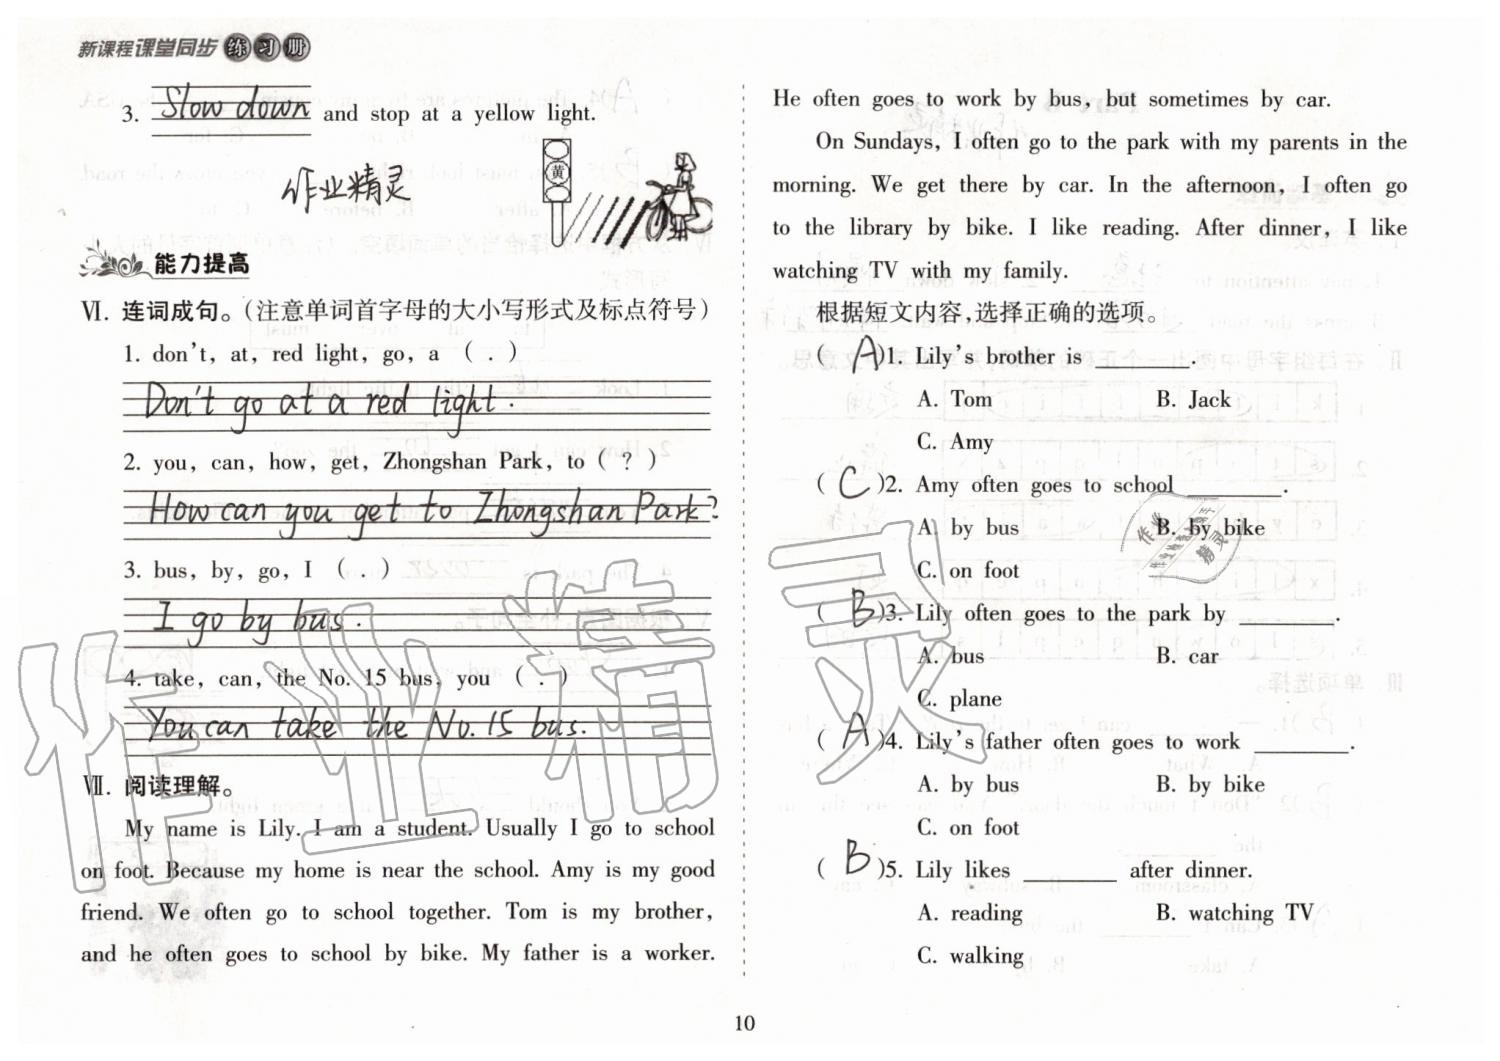 新课程课堂同步练习册
3. Slow down and stop at a yellow light.
黄
作业精灵
能力提高
Ⅵ. 连词成句。(注意单词首字母的大小写形式及标点符号)
1. don't, at, red light, go, a ( . )
Don't go at a red light.
2. you, can, how, get, Zhongshan Park, to ( ? )
How can you get to Zhongshan Park?
3. bus, by, go, I ( . )
I go by bus.
4. take, can, the No. 15 bus, you ( . )
You can take the No. 15 bus.
Ⅶ. 阅读理解。
My name is Lily. I am a student. Usually I go to school
on foot. Because my home is near the school. Amy is my good
friend. We often go to school together. Tom is my brother,
and he often goes to school by bike. My father is a worker.
He often goes to work by bus, but sometimes by car.
On Sundays, I often go to the park with my parents in the
morning. We get there by car. In the afternoon, I often go
to the library by bike. I like reading. After dinner, I like
watching TV with my family.
根据短文内容,选择正确的选项。
( A )1. Lily's brother is ________.
A. Tom B. Jack
C. Amy
( C )2. Amy often goes to school ________.
A. by bus B. by bike
C. on foot
( B )3. Lily often goes to the park by ________.
A. bus B. car
C. plane
( A )4. Lily's father often goes to work ________.
A. by bus B. by bike
C. on foot
( B )5. Lily likes ________ after dinner.
A. reading B. watching TV
C. walking
作业精灵
10